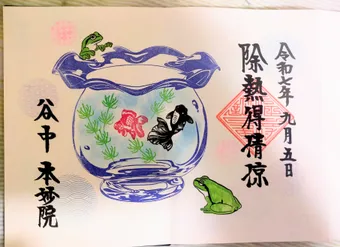 令和七年 九月五日
除熱得清凉
谷中 本妙院